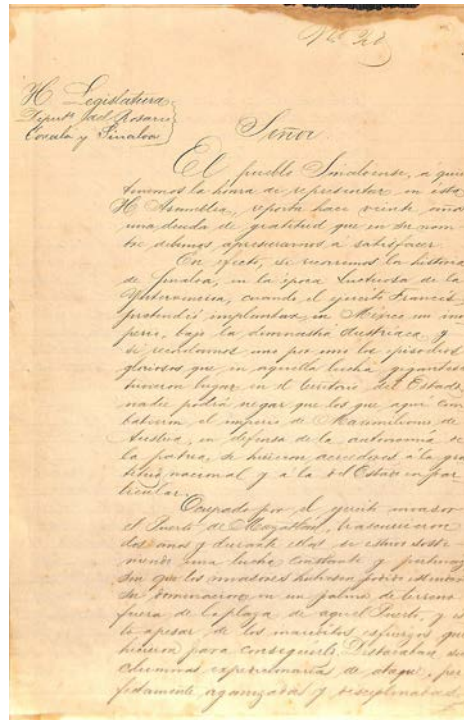 H. Legislatura
Diputs del Rosario
Cosalá y Sinaloa
Señor
El pueblo Sinaloense, á quien
tenemos la honra de representar en esta
H. Asamblea, reporta hace veinte años
una deuda de gratitud que en su nom
bre debemos apresurarnos a satisfacer.
En efecto, si recorremos la historia
de Sinaloa, en la época luctuosa de la
Yntervencion, cuando el ejército Francés
pretendió implantar en México un im
perio, bajo la dinastía Austriaca, y
si recordamos uno por uno los episodios
gloriosos que en aquella lucha gigantesca
tuvieron lugar en el territorio del Estado
nadie podrá negar que los que aquí com
batieron el imperio de Maximiliano de
Austria, en defensa de la autonomía de
la patria, se hicieron acreedores á la gra
titud nacional y á la del Estado en par
ticular.
Ocupado por el ejército invasor
el Puerto de Mazatlán, trascurrieron
dos años y durante ellos se estuvo soste
niendo una lucha constante y pertinaz
sin que los invasores hubieran podido estender
su dominacion en un palmo de terreno
fuera de la plaza de aquel Puerto, y es
to apesar de los inauditos esfuerzos que
hicieron para conseguirlo. Destacaban sus
columnas expedicionarias de ataque, per
fectamente organizadas y disciplinadas,